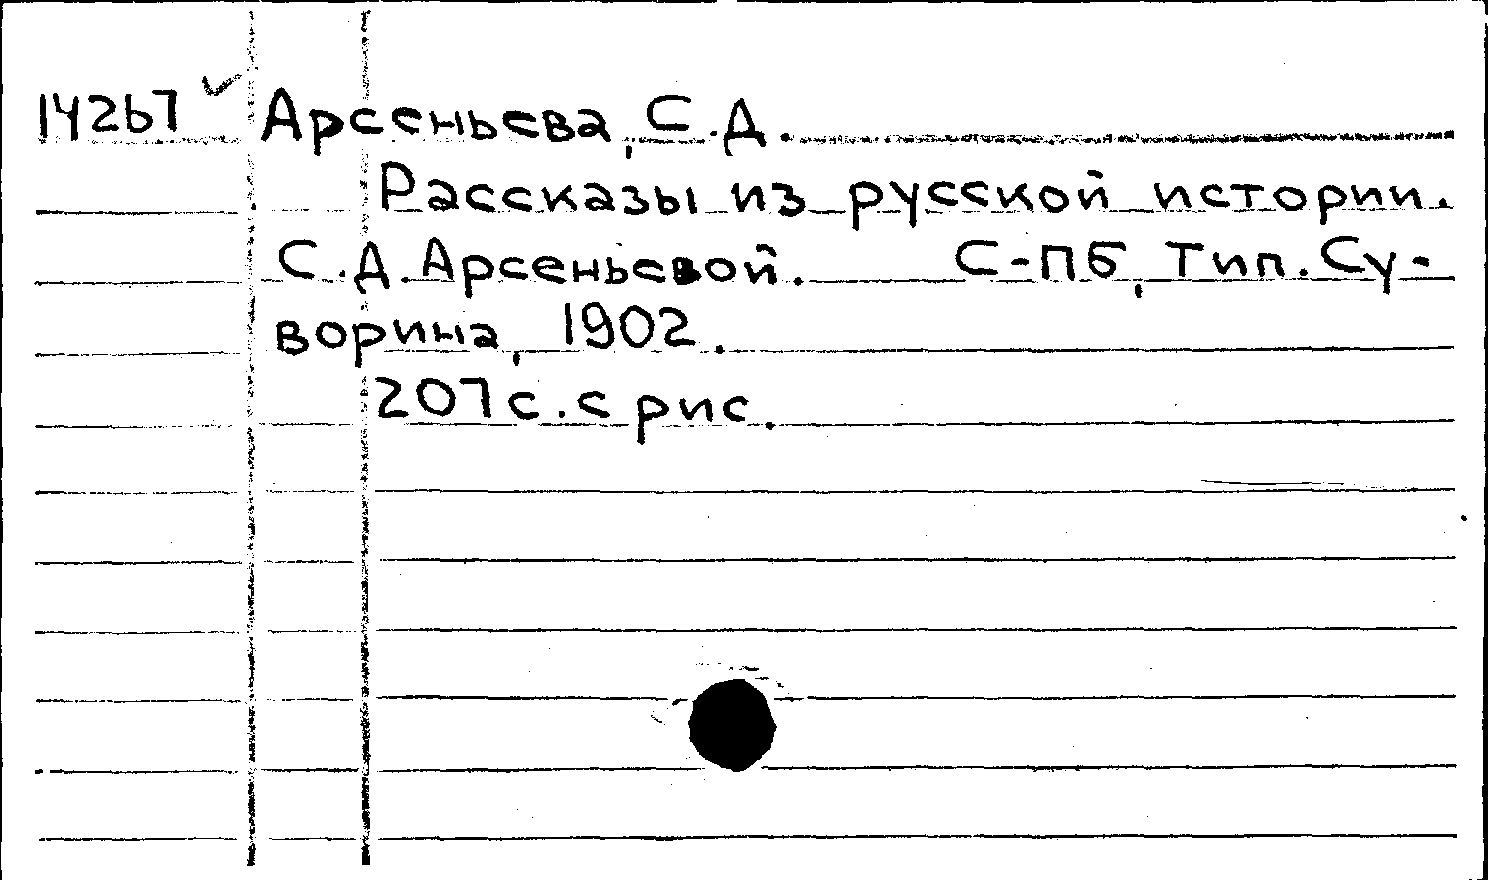 14267 ✓ Арсеньева, С.Д.
Рассказы из русской истории.
С.Д. Арсеньевой. С-ПБ, Тип. Су-
ворина, 1902.
207 с. с рис.